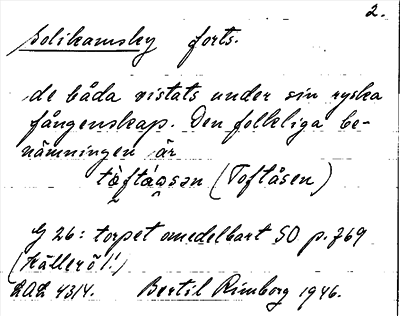 2.
Solikamsky forts.
de båda vistats under sin ryska
fångenskap. Den folkliga be-
nämningen är
tòftáosən (Toftåsen)
G 26: torpet omedelbart SO p. 769
(Källeröl!)
LAL 4314. Bertil Rimborg 1946.